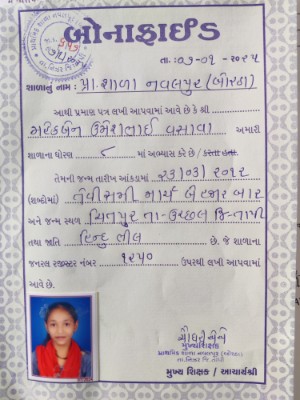 બોનાફાઈડ
તા. :૦૭-૦૧ -૨૦૨૫
શાળાનું નામ : પ્રા.શાળા નવલપુર (બોરઠા)
આથી પ્રમાણ પત્ર લખી આપવામાં આવે છે કે શ્રી
ઉમેશભાઈ વસાવા અમારી
શાળાના ધોરણ ૮ માં અભ્યાસ કરે છે / કરતા હતા.
તેમની જન્મ તારીખ આંકડામાં ૨૩/૦૩/૨૦૧૨
(શબ્દોમાં) તેવીસમી માર્ચ બે હજાર બાર
અને જન્મ સ્થળ ચિતપુર તા-ઉચ્છલ જિ-તાપી
તથા જાતિ હિન્દુ ભીલ છે. જે શાળાના
જનરલ રજીસ્ટર નંબર ૧૨૫૦ ઉપરથી લખી આપવામાં
આવે છે.
મુખ્યશિક્ષક
મુખ્ય શિક્ષક / આચાર્યશ્રી